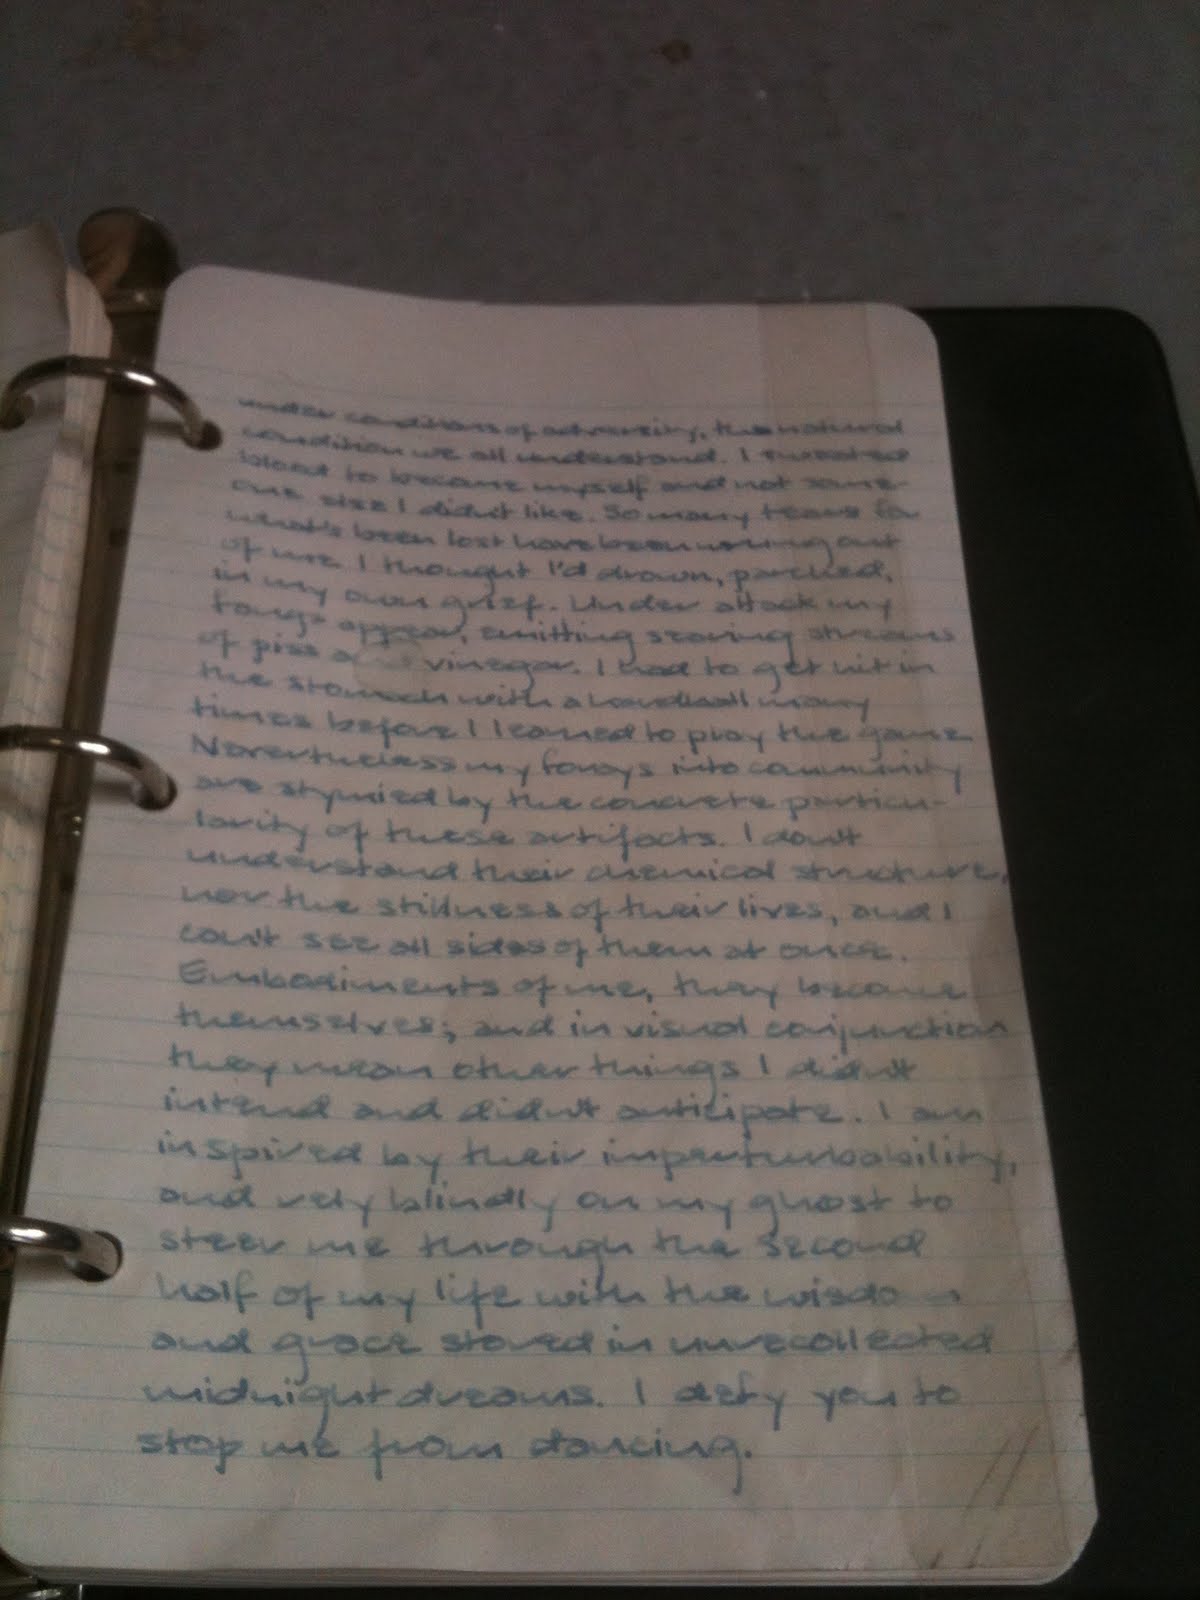 under conditions of adversity, the natural
condition we all understand. I sweated
blood to become myself and not some-
one else I didn't like. So many tears for
what's been lost have been pouring out
of me I thought I'd drown, parched,
in my own grief. Under attack my
fangs appear, emitting searing streams
of piss and vinegar. I had to get hit in
the stomach with a hardball many
times before I learned to play the game
Nevertheless my forays into community
are stymied by the concrete particu-
larity of these artifacts. I don't
understand their chemical structure,
nor the stillness of their lives, and I
can't see all sides of them at once.
Embodiments of me, they become
themselves; and in visual conjunction
they mean other things I didn't
intend and didn't anticipate. I am
inspired by their imperturbability,
and rely blindly on my ghost to
steer me through the second
half of my life with the wisdom
and grace stored in unrecollected
midnight dreams. I defy you to
stop me from dancing.